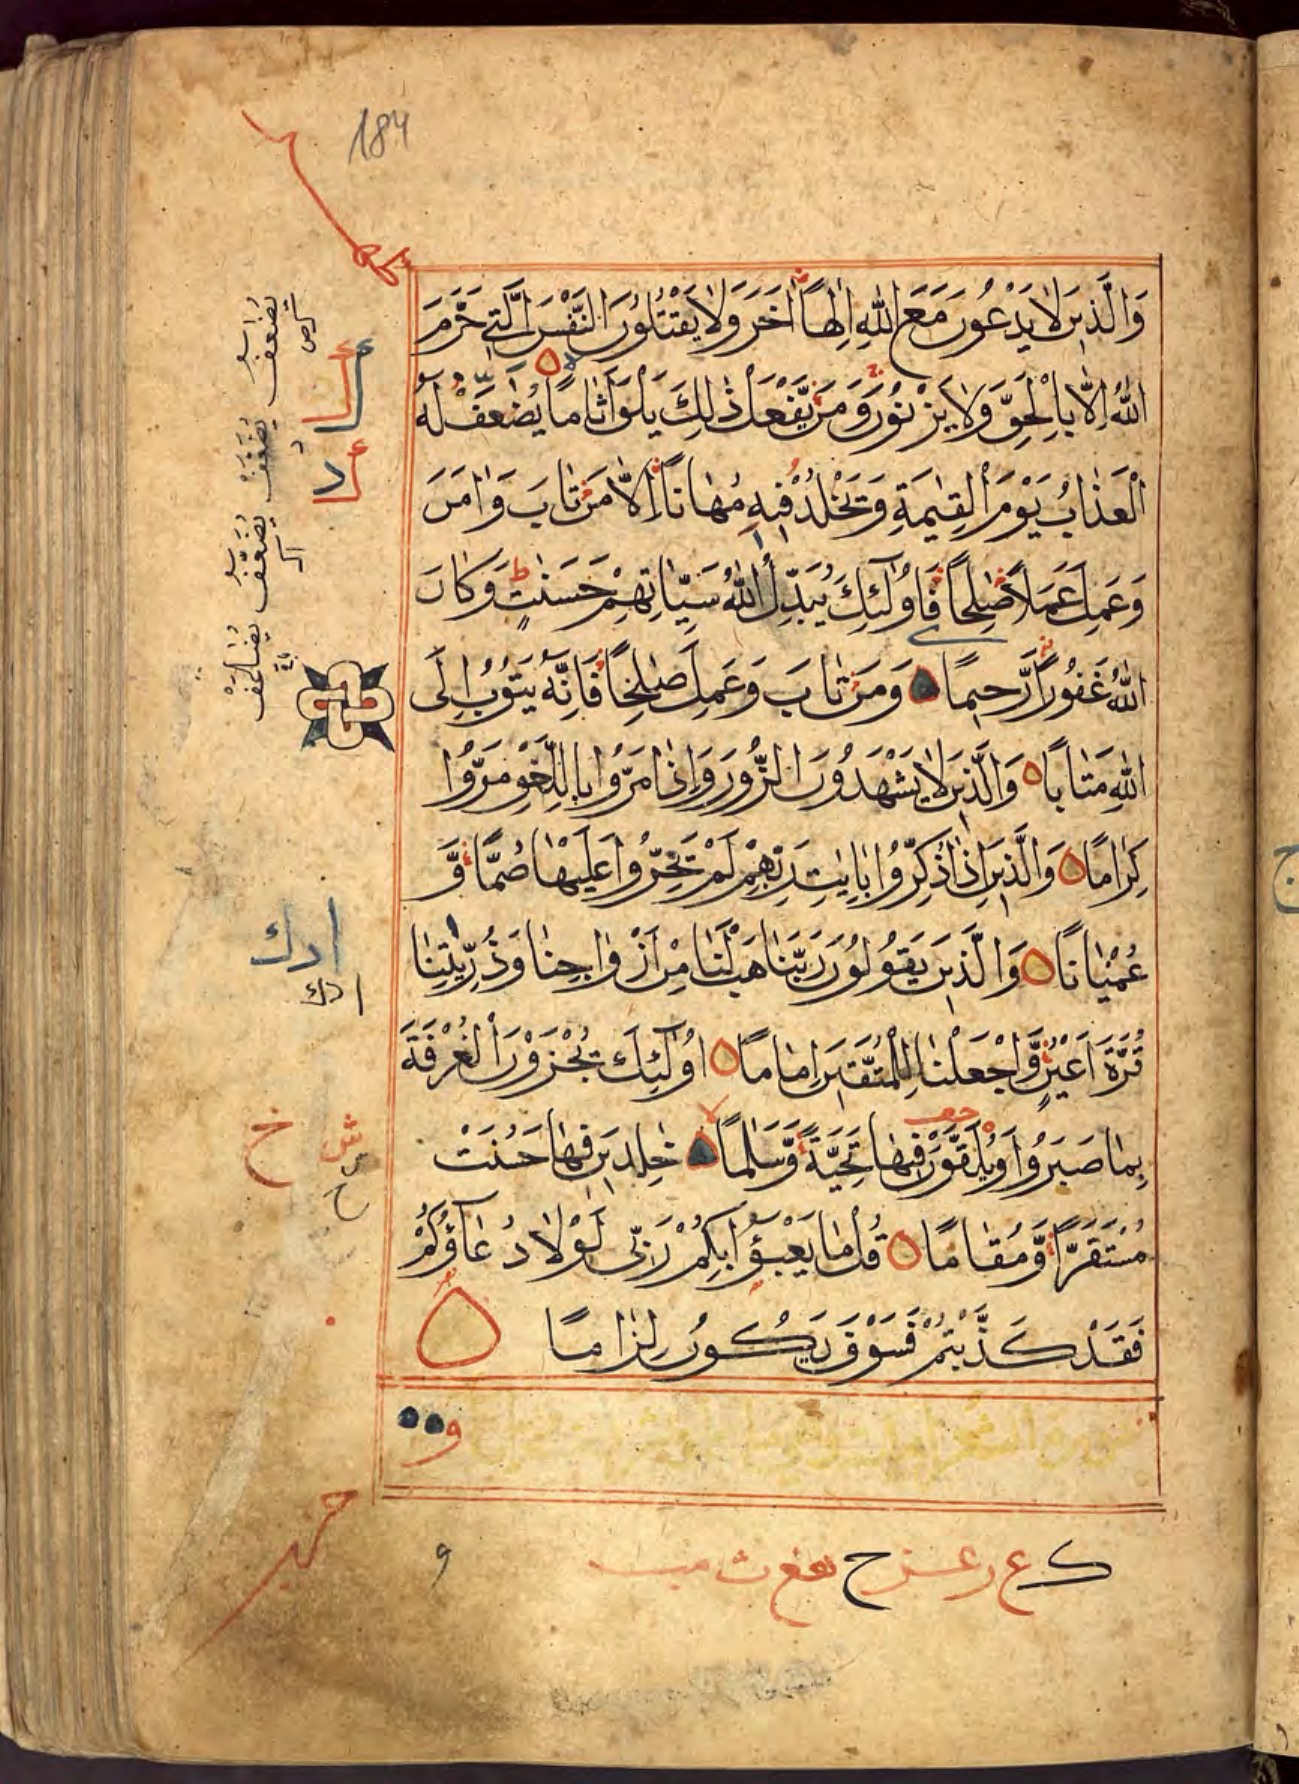 184
وَالَّذِينَ لَا يَدْعُونَ مَعَ اللَّهِ إِلٰهًا اٰخَرَ وَلَا يَقْتُلُونَ النَّفْسَ الَّتِي حَرَّمَ
اللَّهُ إِلَّا بِالْحَقِّ وَلَا يَزْنُونَ وَمَنْ يَّفْعَلْ ذٰلِكَ يَلْقَ اَثَامًا يُضٰعَفْ لَهُ
الْعَذَابُ يَوْمَ الْقِيٰمَةِ وَيَخْلُدْ فِيهِ مُهَانًا إِلَّا مَنْ تَابَ وَاٰمَنَ
وَعَمِلَ عَمَلًا صٰلِحًا فَاُولٰئِكَ يُبَدِّلُ اللَّهُ سَيِّاٰتِهِمْ حَسَنٰتٍ وَكَانَ
اللَّهُ غَفُورًا رَّحِيمًا وَمَنْ تَابَ وَعَمِلَ صٰلِحًا فَاِنَّهُ يَتُوبُ اِلَى
اللَّهِ مَتَابًا وَالَّذِينَ لَا يَشْهَدُونَ الزُّورَ وَاِذَا مَرُّوا بِاللَّغْوِ مَرُّوا
كِرَامًا وَالَّذِينَ اِذَا ذُكِّرُوا بِاٰيٰتِ رَبِّهِمْ لَمْ يَخِرُّوا عَلَيْهَا صُمًّا وَّ
عُمْيَانًا وَالَّذِينَ يَقُولُونَ رَبَّنَا هَبْ لَنَا مِنْ اَزْوَاجِنَا وَذُرِّيّٰتِنَا
قُرَّةَ اَعْيُنٍ وَّاجْعَلْنَا لِلْمُتَّقِينَ اِمَامًا اُولٰئِكَ يُجْزَوْنَ الْغُرْفَةَ
بِمَا صَبَرُوا وَيُلَقَّوْنَ فِيهَا تَحِيَّةً وَّسَلَامًا خٰلِدِينَ فِيهَا حَسُنَتْ
مُسْتَقَرًّا وَّمُقَامًا قُلْ مَا يَعْبَؤُا بِكُمْ رَبِّي لَوْلَا دُعَاؤُكُمْ
فَقَدْ كَذَّبْتُمْ فَسَوْفَ يَكُونُ لِزَامًا